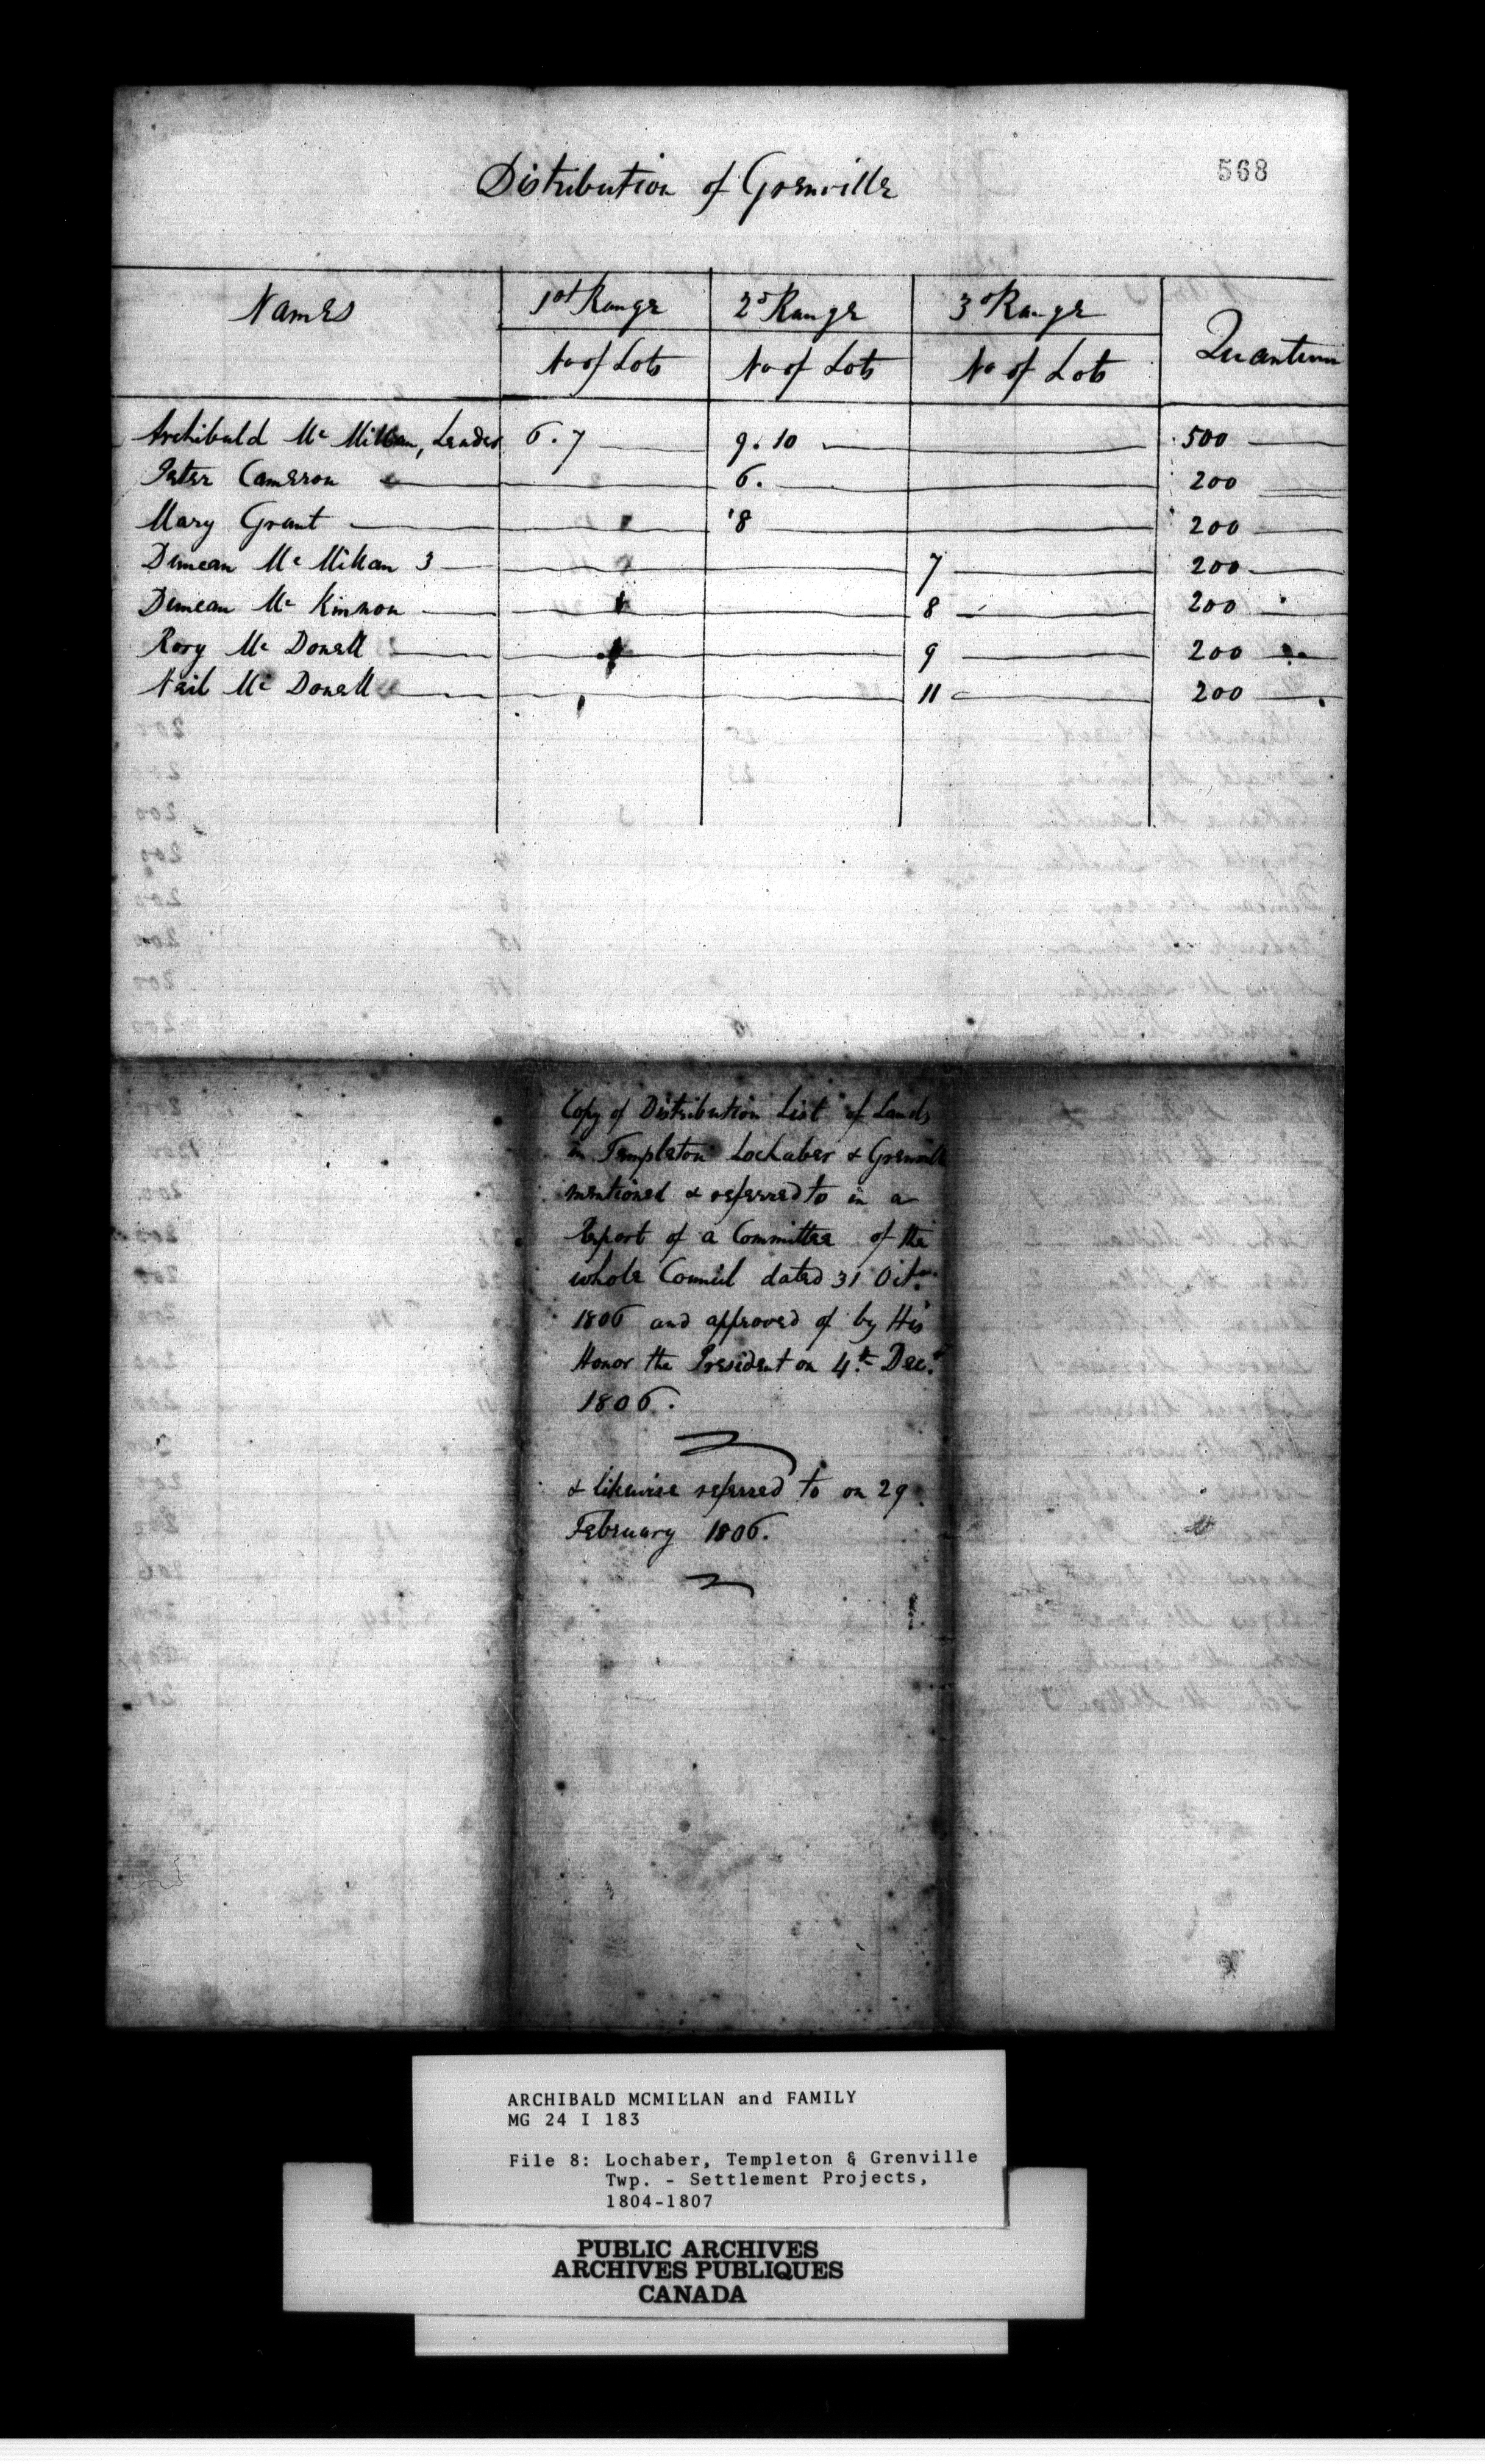 568
Distribution of Grenville
Names 1st Range 2d Range 3d Range Quantum
No of Lots No of Lots No of Lots
Archibald Mc Millan, Leader 6. 7 9. 10 500
Peter Cameron 6. 200
Mary Grant 8 200
Duncan Mc Millan 3 7 200
Duncan Mc Kinnon 8 200
Rory Mc Donell 9 200
Neil Mc Donell 11 200
Copy of Distribution List of Lands
in Templeton Lochaber & Grenville
mentioned & referred to in a
Report of a Committee of the
whole Council dated 31 Octr.
1806 and approved of by His
Honor the President on 4th Decr.
1806.
& likewise referred to on 29
February 1806.
ARCHIBALD MCMILLAN and FAMILY
MG 24 I 183
File 8: Lochaber, Templeton & Grenville
Twp. - Settlement Projects,
1804-1807
PUBLIC ARCHIVES
ARCHIVES PUBLIQUES
CANADA